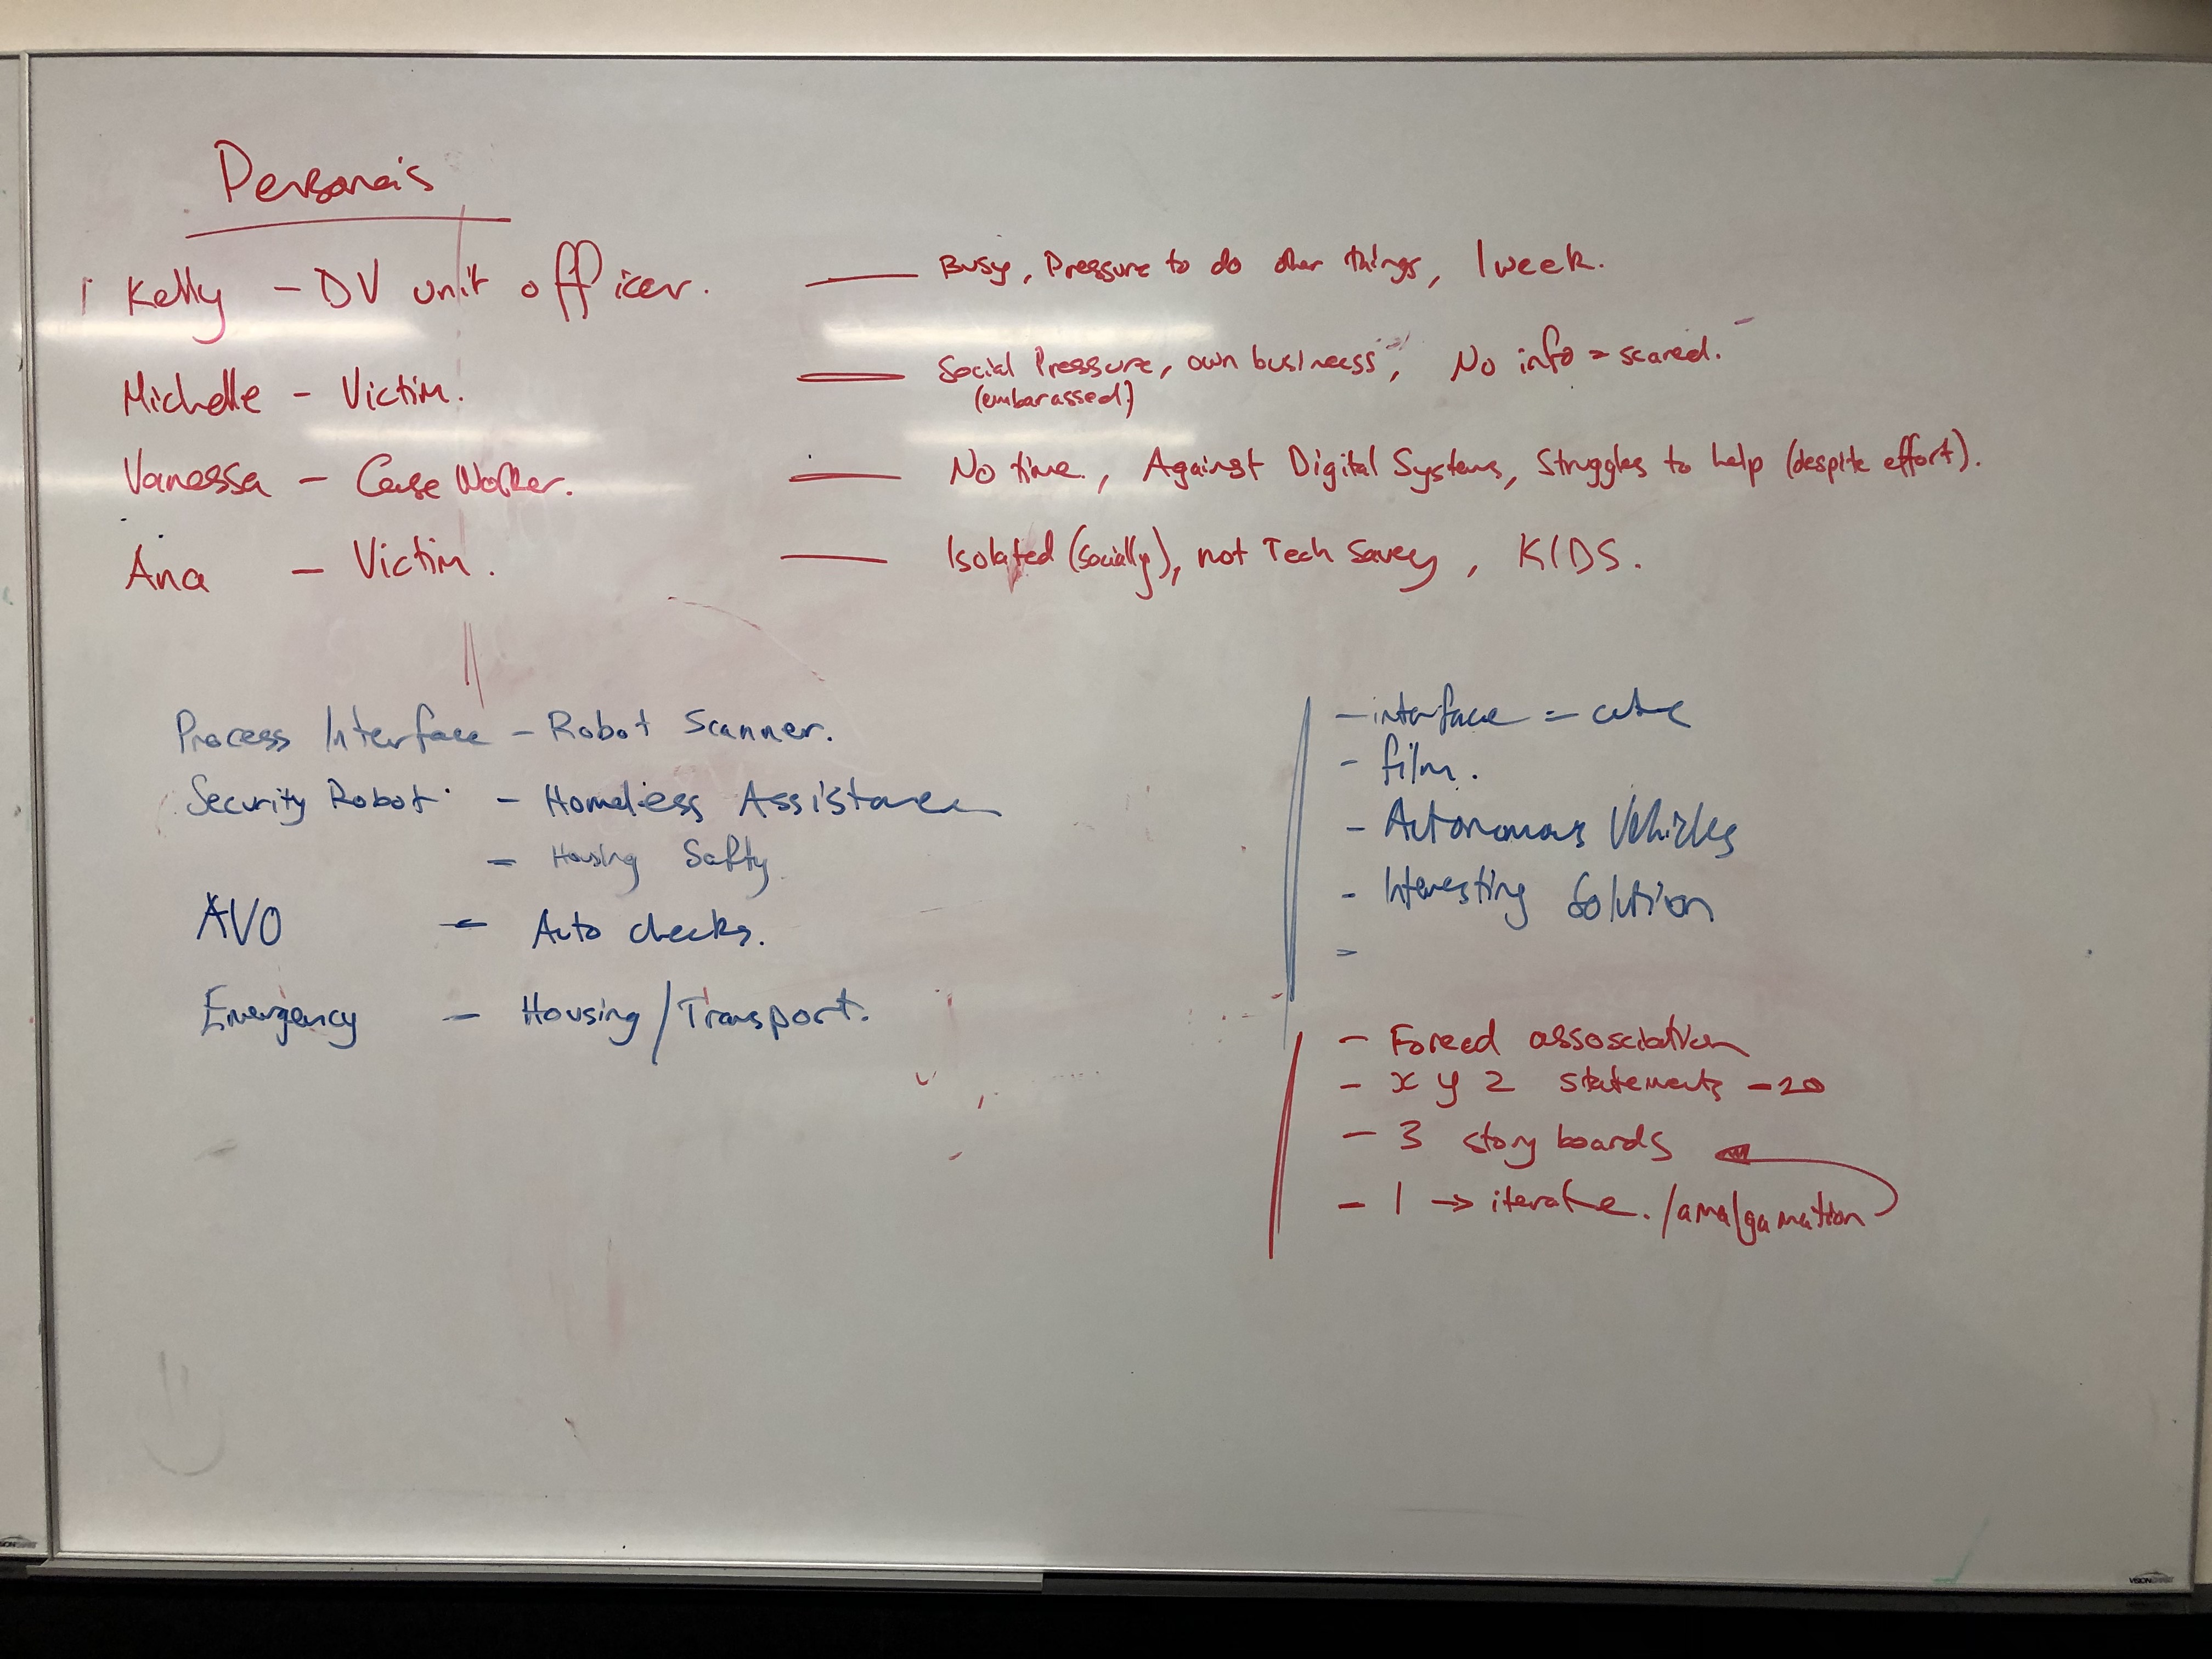 Persona's
Kelly - DV unit officer. — Busy, Pressure to do other things, 1 week.
Michelle - Victim. — Social Pressure, own business, No info = scared.
(embarassed)
Vanessa - Case Worker. — No time, Against Digital Systems, Struggles to help (despite effort).
Ana - Victim. — Isolated (socially), not Tech Savey, KIDS.
Process Interface - Robot Scanner.
Security Robot - Homeless Assistance
- Housing Safty
AVO - Auto checks.
Emergency - Housing/Transport.
- interface = cute
- film.
- Autonomous Vehicles
- Interesting Solution
-
- Forced assosciation
- x y z statements - 20
- 3 story boards
- 1 → iterate. /amalgamation
VISION